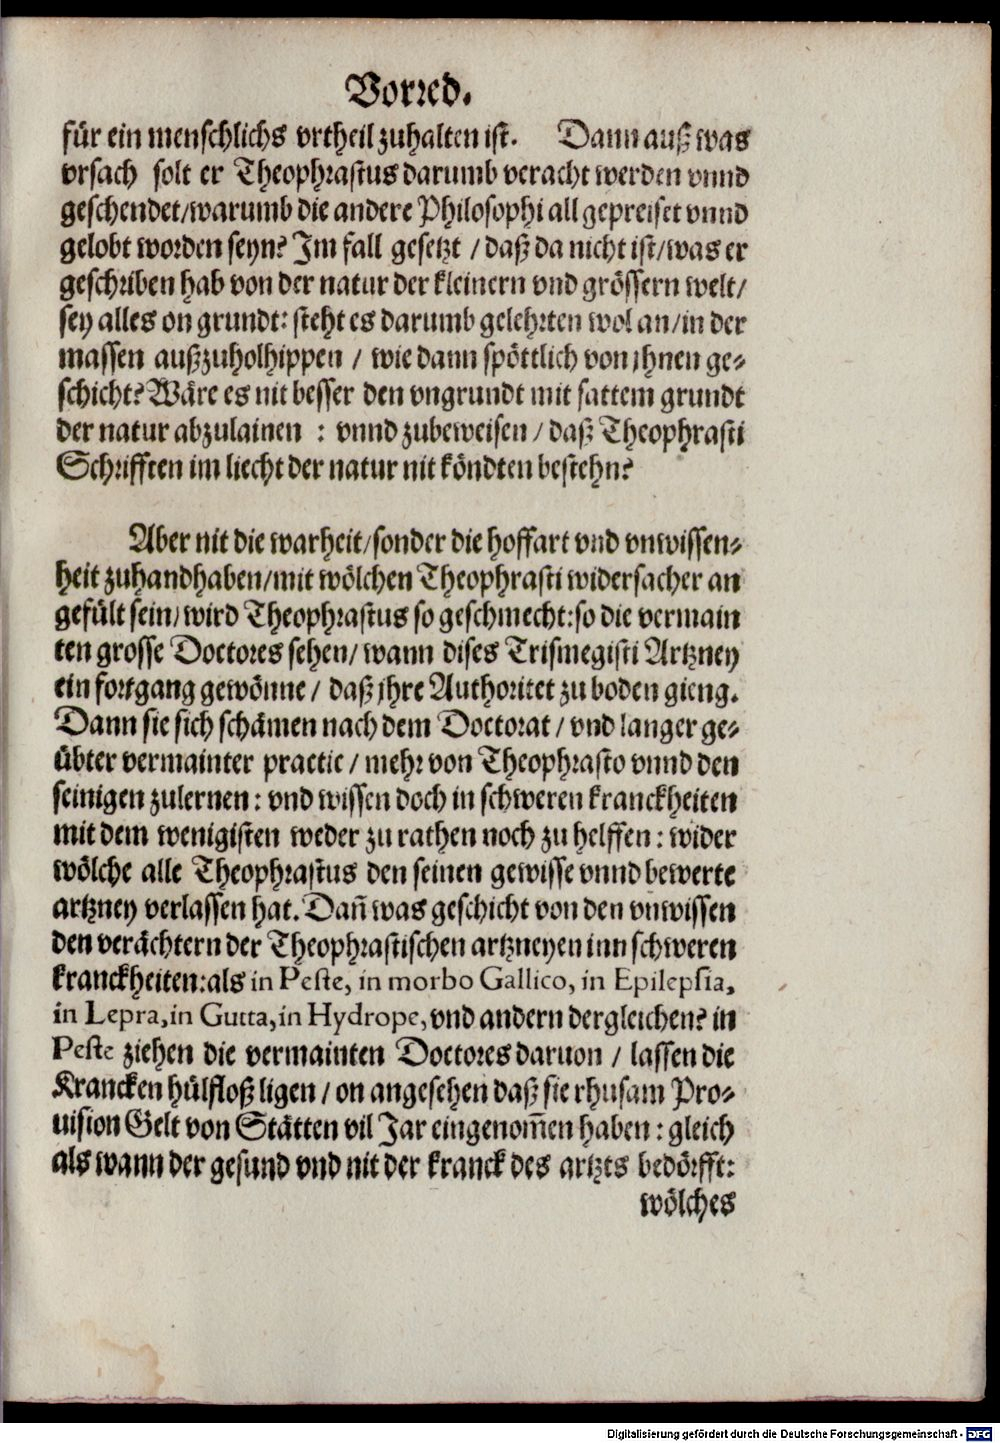 Vorred.
für ein menschlichs vrtheil zuhalten ist. Dann auß was
vrsach solt er Theophrastus darumb veracht werden vnnd
geschendet/warumb die andere Philosophi all gepreiset vnnd
gelobt worden seyn? Im fall gesetzt / daß da nicht ist/was er
geschriben hab von der natur der kleinern vnd grössern welt/
sey alles on grundt: steht es darumb gelehrten wol an/in der
massen außzuholhippen / wie dann spöttlich von jhnen ge-
schicht? Wäre es nit besser den vngrundt mit sattem grundt
der natur abzulainen : vnnd zubeweisen / daß Theophrasti
Schrifften im liecht der natur nit köndten bestehn?
Aber nit die warheit/sonder die hoffart vnd vnwissen-
heit zuhandhaben/mit wölchen Theophrasti widersacher an
gefült sein/wird Theophrastus so geschmecht: so die vermain
ten grosse Doctores sehen/ wann dises Trismegisti Artzney
ein fortgang gewönne / daß jhre Authoritet zu boden gieng.
Dann sie sich schämen nach dem Doctorat / vnd langer ge-
übter vermainter practic / mehr von Theophrasto vnnd den
seinigen zulernen : vnd wissen doch in schweren kranckheiten
mit dem wenigisten weder zu rathen noch zu helffen : wider
wölche alle Theophrastus den seinen gewisse vnnd bewerte
artzney verlassen hat. Dañ was geschicht von den vnwissen
den verächtern der Theophrastischen artzneyen inn schweren
kranckheiten: als in Peste, in morbo Gallico, in Epilepsia,
in Lepra, in Gutta, in Hydrope, vnd andern dergleichen? in
Peste ziehen die vermainten Doctores daruon / lassen die
Krancken hülfloß ligen / on angesehen daß sie rhusam Pro-
uision Gelt von Stätten vil Jar eingenom̃en haben : gleich
als wann der gesund vnd nit der kranck des artzts bedörfft:
wölches
Digitalisierung gefördert durch die Deutsche Forschungsgemeinschaft - DFG